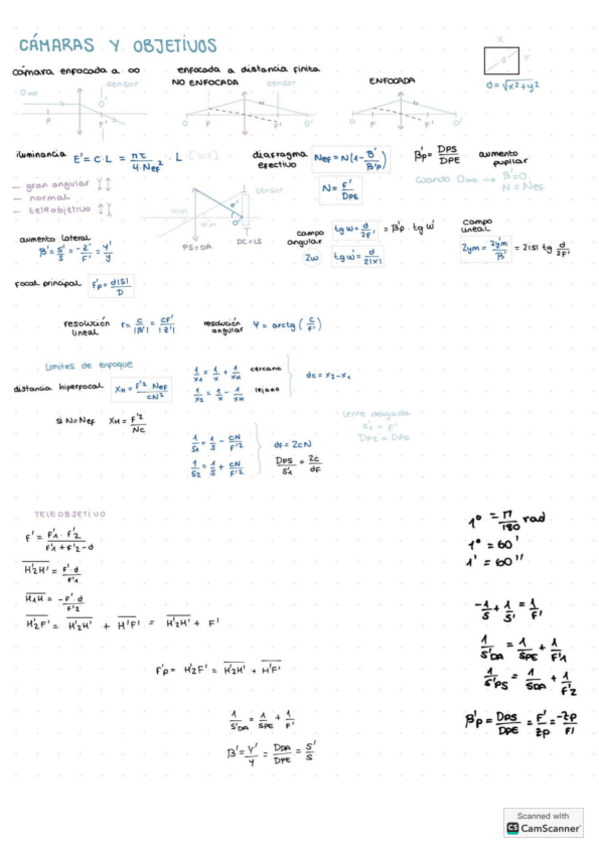 CÁMARAS Y OBJETIVOS
x
y
d
d=√x²+y²
cámara enfocada a ∞
enfocada a distancia finita
NO ENFOCADA
ENFOCADA
O∞
sensor
sensor
F F'
F F' O'
F F' O'
iluminancia E' = C·L = πτ/4·Nef² · L [lux]
diafragma efectivo Nef = N(1-β'/β'p)
β'p = DPS/DPE aumento pupilar
cuando O∞ → β'=0 N=Nef
N = F'/DPE
— gran angular
— normal
— teleobjetivo
sensor
PS=DA
DC=LS
aumento lateral
β' = s'/s = -z'/F' = y'/y
campo angular
2w
tg w = d/2F' = β'p · tg w'
tg w' = d/2|x'|
campo lineal
2ym = 2y'm/β' = 2|s| tg d/2F'
focal principal F'p = d|s|/D
resolución lineal r = c/|β'| = cF'/|z'|
resolución angular Ψ = arctg (c/F')
Límites de enfoque
distancia hiperfocal XH = F'² Nef/cN²
1/x1 = 1/x + 1/xH cercano
1/x2 = 1/x - 1/xH lejano
dc = x2-x1
si N=Nef XH = F'²/Nc
lente delgada
s'1 = F'
DPS = DPE
1/s1 = 1/s - cN/F'²
1/s2 = 1/s + cN/F'²
df = 2cN
DPS/s'1 = 2c/df
TELEOBJETIVO
F' = F'1·F'2/F'1+F'2-d
H'2H' = F'·d/F'1
H1H = -F'·d/F'2
H'2F' = H'2H' + H'F' = H'2H' + F'
F'p = H'2F' = H'2H' + H'F'
1/s'DA = 1/sPE + 1/F'
β' = y'/y = DDA/DPE = s'/s
1° = π/180 rad
1° = 60'
1' = 60''
-1/s + 1/s' = 1/F'
1/s'DA = 1/sPE + 1/F'1
1/s'PS = 1/sDA + 1/F'2
β'p = DPS/DPE = F'/zp = -z'p/F'
Scanned with
CS CamScanner